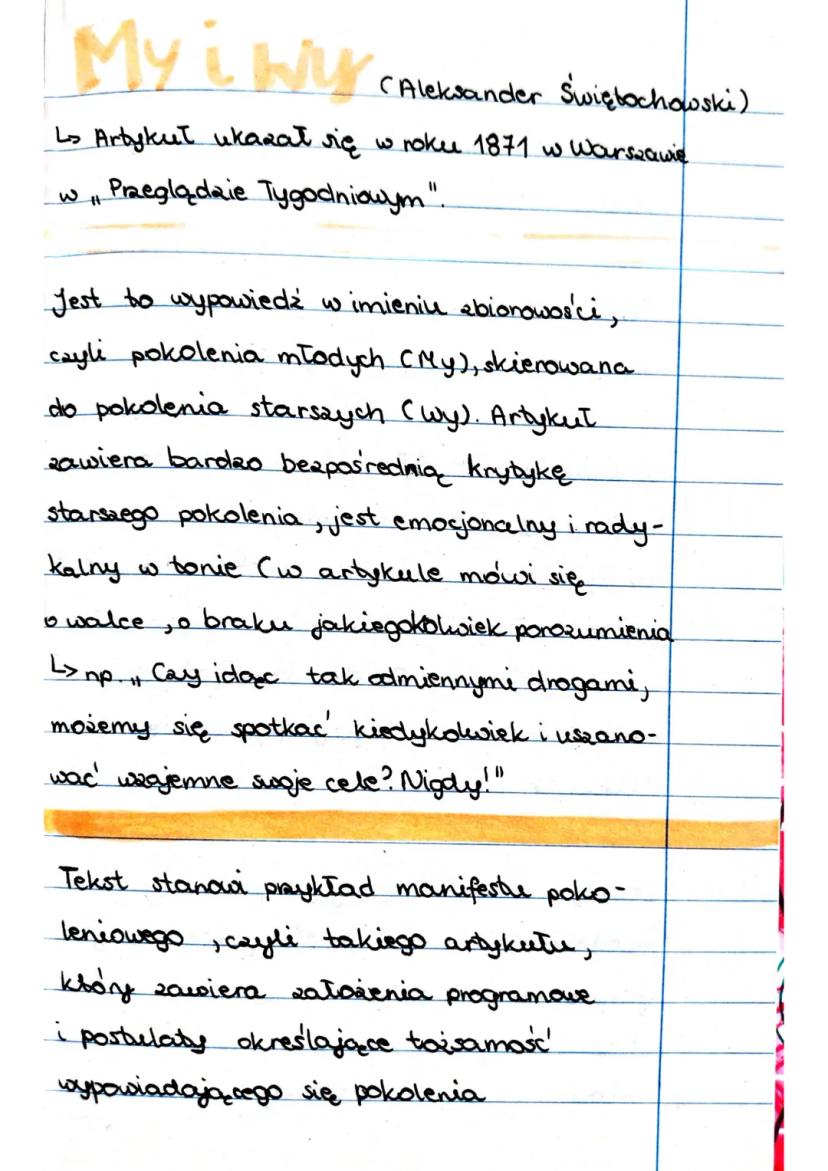 My i wy (Aleksander Świętochowski)
↳ Artykuł ukazał się w roku 1871 w Warszawie
w „Przeglądzie Tygodniowym".
Jest to wypowiedź w imieniu zbiorowości,
czyli pokolenia młodych (My), skierowana
do pokolenia starszych (wy). Artykuł
zawiera bardzo bezpośrednią krytykę
starszego pokolenia, jest emocjonalny i rady-
kalny w tonie (w artykule mówi się
o walce, o braku jakiegokolwiek porozumienia
↳ np. „Czy idąc tak odmiennymi drogami,
możemy się spotkać kiedykolwiek i uszano-
wać wzajemne swoje cele? Nigdy!"
Tekst stanowi przykład manifestu poko-
leniowego, czyli takiego artykułu,
który zawiera założenia programowe
i postulaty określające tożsamość
wypowiadającego się pokolenia